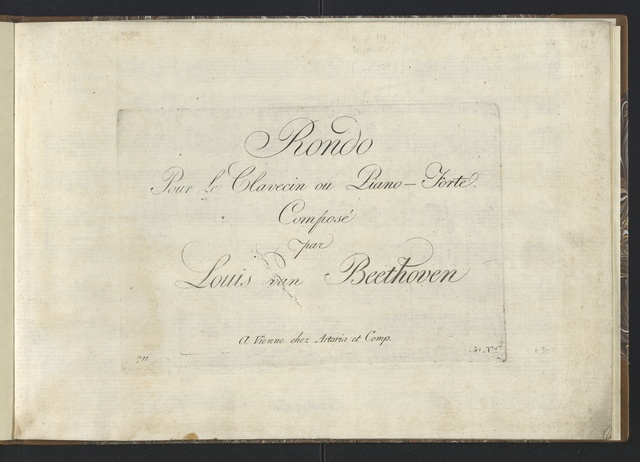 Rondo
Pour le Clavecin ou Piano-Forte.
Composé
par
Louis van Beethoven
A Vienne chez Artaria et Comp.
711